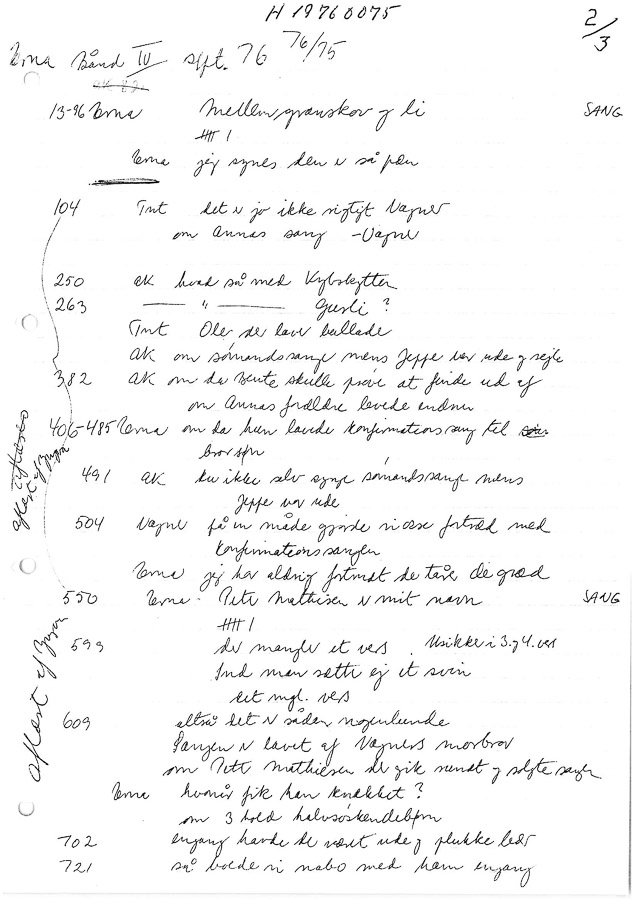 H 19760075
2/3
Erna Bånd IV sept. 76 76/75
13-96 Erna Mellem granskov og li SANG
Erna jeg synes den er så pæn
104 Tnt det er jo ikke rigtigt Vagner
om Annas sang - Vagner
250 AK hvad så med Krybskytten
263 — " — Gusli ?
Tnt Ole der laver ballade
AK om sømandssange mens Jeppe var ude og sejle
382 AK om da Bente skulle prøve at finde ud af
om Annas forældre levede endnu
406-485 Erna om da hun lavede konfirmationssang til
brorsøn
491 AK ku ikke selv synge sømandssange mens
Jeppe var ude
504 Vagner på en måde gjorde vi os fortræd med
konfirmationssangen
Erna jeg har aldrig fortrudt de tårer de græd
550 Erna Peter Mathisen er mit navn SANG
599 der mangler et vers. Usikker i 3. og 4. vers
Ind man satte ej et svin
det mgl. vers
609 altså det er sådan nogenlunde
Sangen er lavet af Vagners morbror
om Peter Mathiesen der gik rundt og solgte sange
Erna hvornår fik han knækket ?
om 3 hold halvsøskendebørn
702 engang havde de været ude og plukke bær
721 så boede vi nabo med ham engang
aflæst af
aflæst af